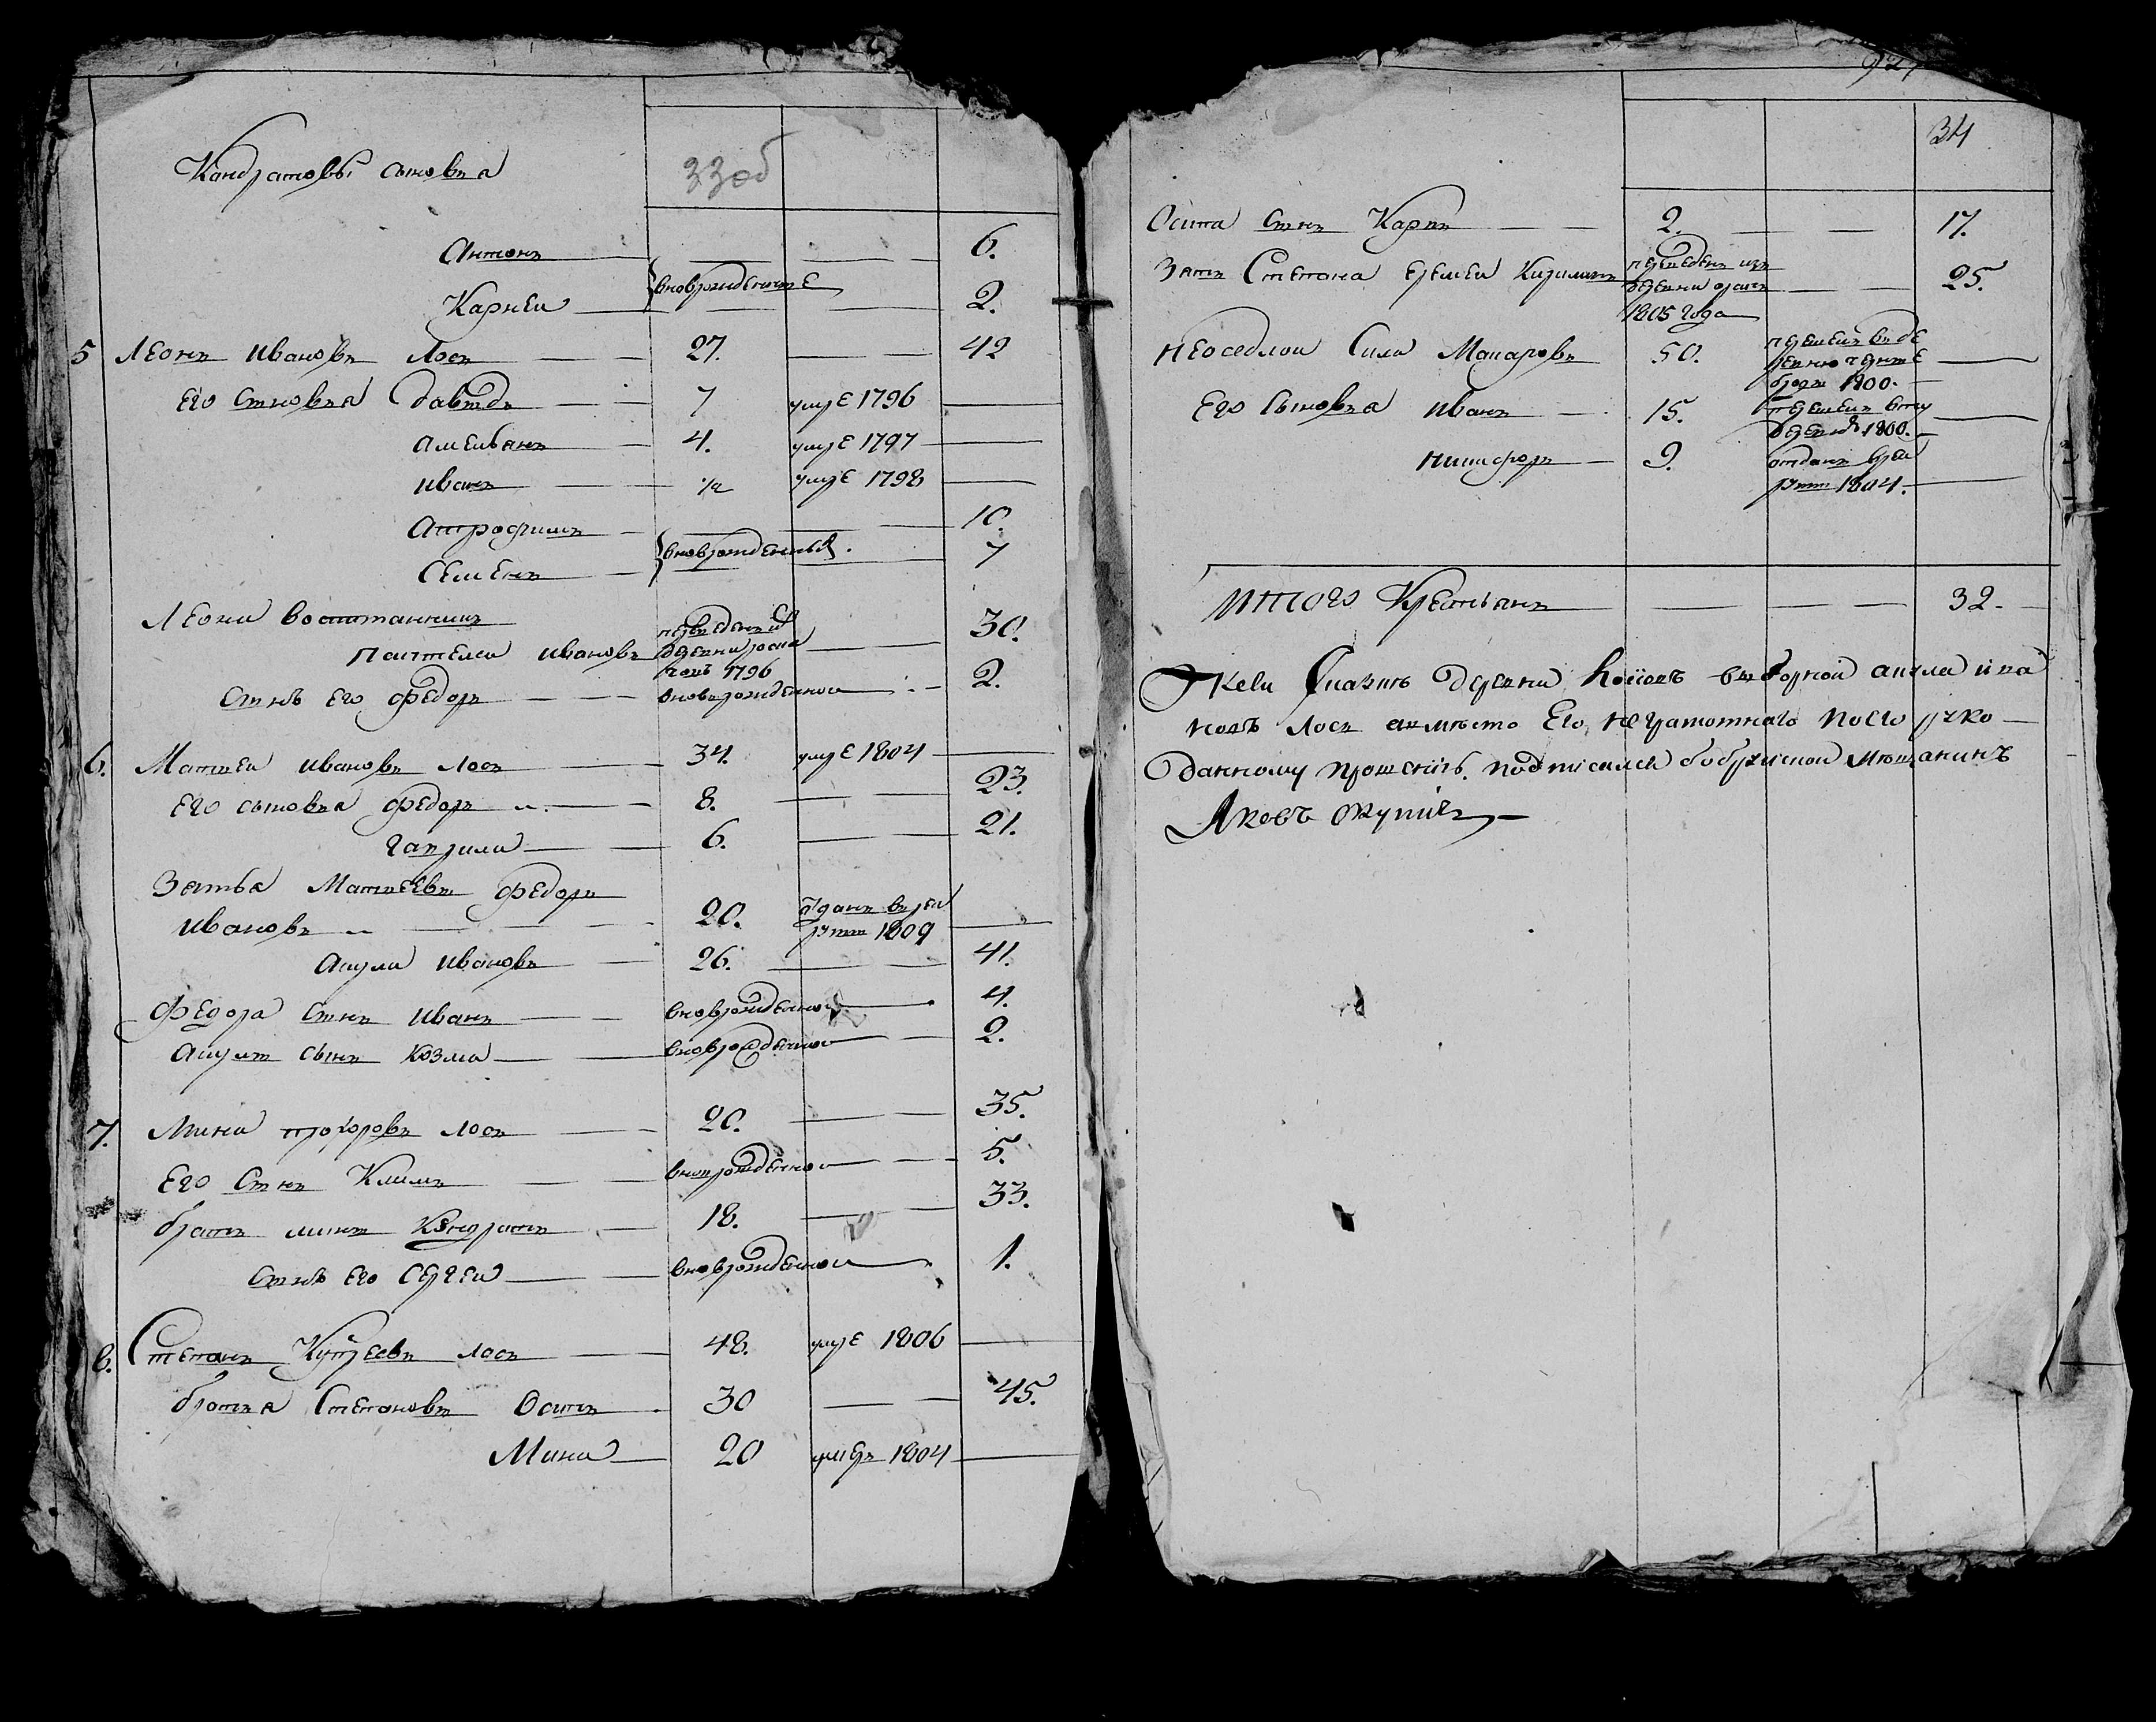 33 об
Кандратовы сыновья
Антонъ 6.
вноврожденные
Карней 2.
5 Леонъ Ивановъ Лось 27. 42
Его сыновья Давыдъ 7 умре 1796
Амельянъ 4. умре 1797
Иванъ 1/2 умре 1798
Антрофимъ 10.
вноврожденныя
Семенъ 7
Леона воспитанникъ
Пантелей Ивановъ 30.
1796
Сынъ Его Федоръ вноврожденной 2.
6. Матвей Ивановъ Лось 34. умре 1804
Его сыновья Федоръ 8. 23.
Гаврила 6. 21.
Зятья Матвеевы Федоръ
Ивановъ 20. отданъ в рек
руты 1809
Акула Ивановъ 26. 41.
Федора сынъ Иванъ вноврожденной 4.
Акулы сынъ Козма вноврожденной 2.
7. Мина Прохоровъ Лось 20. 35.
Его Сынъ Климъ вноврожденной 5.
братъ мины Кандратъ 18. 33.
Сынъ Его Сергей вноврожденной 1.
8. Степанъ Купреевъ Лось 48. умре 1806
братья Степановы Осипъ 30 45.
Мина 20 умеръ 1804
34
Осипа Сынъ Карпъ 2. 17.
Зять Степана Еремей переведенъ изъ
деревни 25.
1805 года
Неоседлой Сила Макаровъ 50. перешелъ в де
ревню
1800.
Его Сыновья Иванъ 15. перешелъ в ту
деревню 1800.
Никифоръ 9. отданъ в рек
руты 1804.
Итого Крестьянъ 32.
К сей сказке деревни выборной
Лось а вместо Его неграмотнаго по Его руко
данному прошению подписался бобруйской мещанинъ
Яковъ